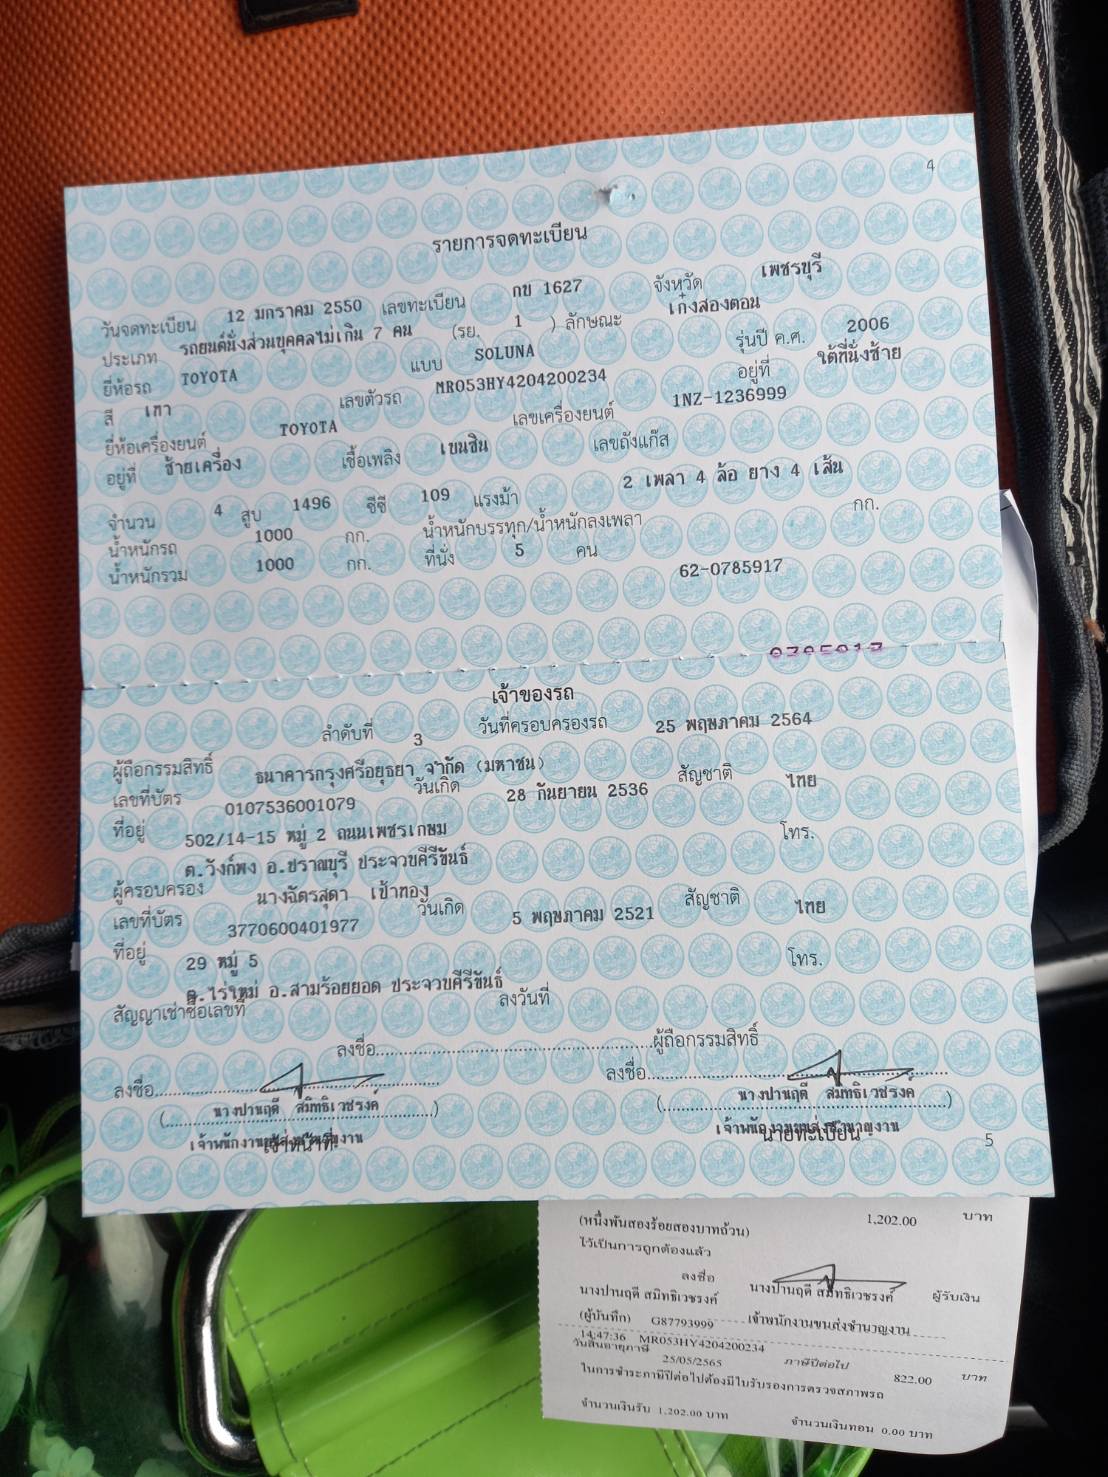 4
รายการจดทะเบียน
วันจดทะเบียน 12 มกราคม 2550 เลขทะเบียน กข 1627 จังหวัด เพชรบุรี
ประเภท รถยนต์นั่งส่วนบุคคลไม่เกิน 7 คน (รย. 1 ) ลักษณะ เก๋งสองตอน
ยี่ห้อรถ TOYOTA แบบ SOLUNA รุ่นปี ค.ศ. 2006
สี เทา เลขตัวรถ MR053HY4204200234 อยู่ที่ ใต้ที่นั่งซ้าย
ยี่ห้อเครื่องยนต์ TOYOTA เลขเครื่องยนต์ 1NZ-1236999
อยู่ที่ ซ้ายเครื่อง เชื้อเพลิง เบนซิน เลขถังแก๊ส
จำนวน 4 สูบ 1496 ซีซี 109 แรงม้า 2 เพลา 4 ล้อ ยาง 4 เส้น
น้ำหนักรถ 1000 กก. น้ำหนักบรรทุก/น้ำหนักลงเพลา กก.
น้ำหนักรวม 1000 กก. ที่นั่ง 5 คน
62-0785917
เจ้าของรถ
ลำดับที่ 3 วันที่ครอบครองรถ 25 พฤษภาคม 2564
ผู้ถือกรรมสิทธิ์ ธนาคารกรุงศรีอยุธยา จำกัด (มหาชน)
เลขที่บัตร 0107536001079 วันเกิด 28 กันยายน 2536 สัญชาติ ไทย
ที่อยู่ 502/14-15 หมู่ 2 ถนนเพชรเกษม โทร.
ต.วังก์พง อ.ปราณบุรี ประจวบคีรีขันธ์
ผู้ครอบครอง นางฉัตรสุดา เป้าทอง
เลขที่บัตร 3770600401977 วันเกิด 5 พฤษภาคม 2521 สัญชาติ ไทย
ที่อยู่ 29 หมู่ 5 โทร.
ต.ไร่ใหม่ อ.สามร้อยยอด ประจวบคีรีขันธ์
สัญญาเช่าซื้อเลขที่ ลงวันที่
ลงชื่อ..........ผู้ถือกรรมสิทธิ์
ลงชื่อ.......... ลงชื่อ..........
(นางปานฤดี สมิทธิเวชรงค์) (นางปานฤดี สมิทธิเวชรงค์)
เจ้าหน้าที่ นายทะเบียน
5
(หนึ่งพันสองร้อยสองบาทถ้วน) 1,202.00 บาท
ไว้เป็นการถูกต้องแล้ว
ลงชื่อ
นางปานฤดี สมิทธิเวชรงค์ นางปานฤดี สมิทธิเวชรงค์ ผู้รับเงิน
(ผู้บันทึก) G87793999 เจ้าพนักงานขนส่งชำนาญงาน
14:47:36 MR053HY4204200234
วันสิ้นอายุภาษี 25/05/2565 ภาษีปีต่อไป 822.00 บาท
ในการชำระภาษีปีต่อไปต้องมีใบรับรองการตรวจสภาพรถ
จำนวนเงินรับ 1,202.00 บาท จำนวนเงินทอน 0.00 บาท